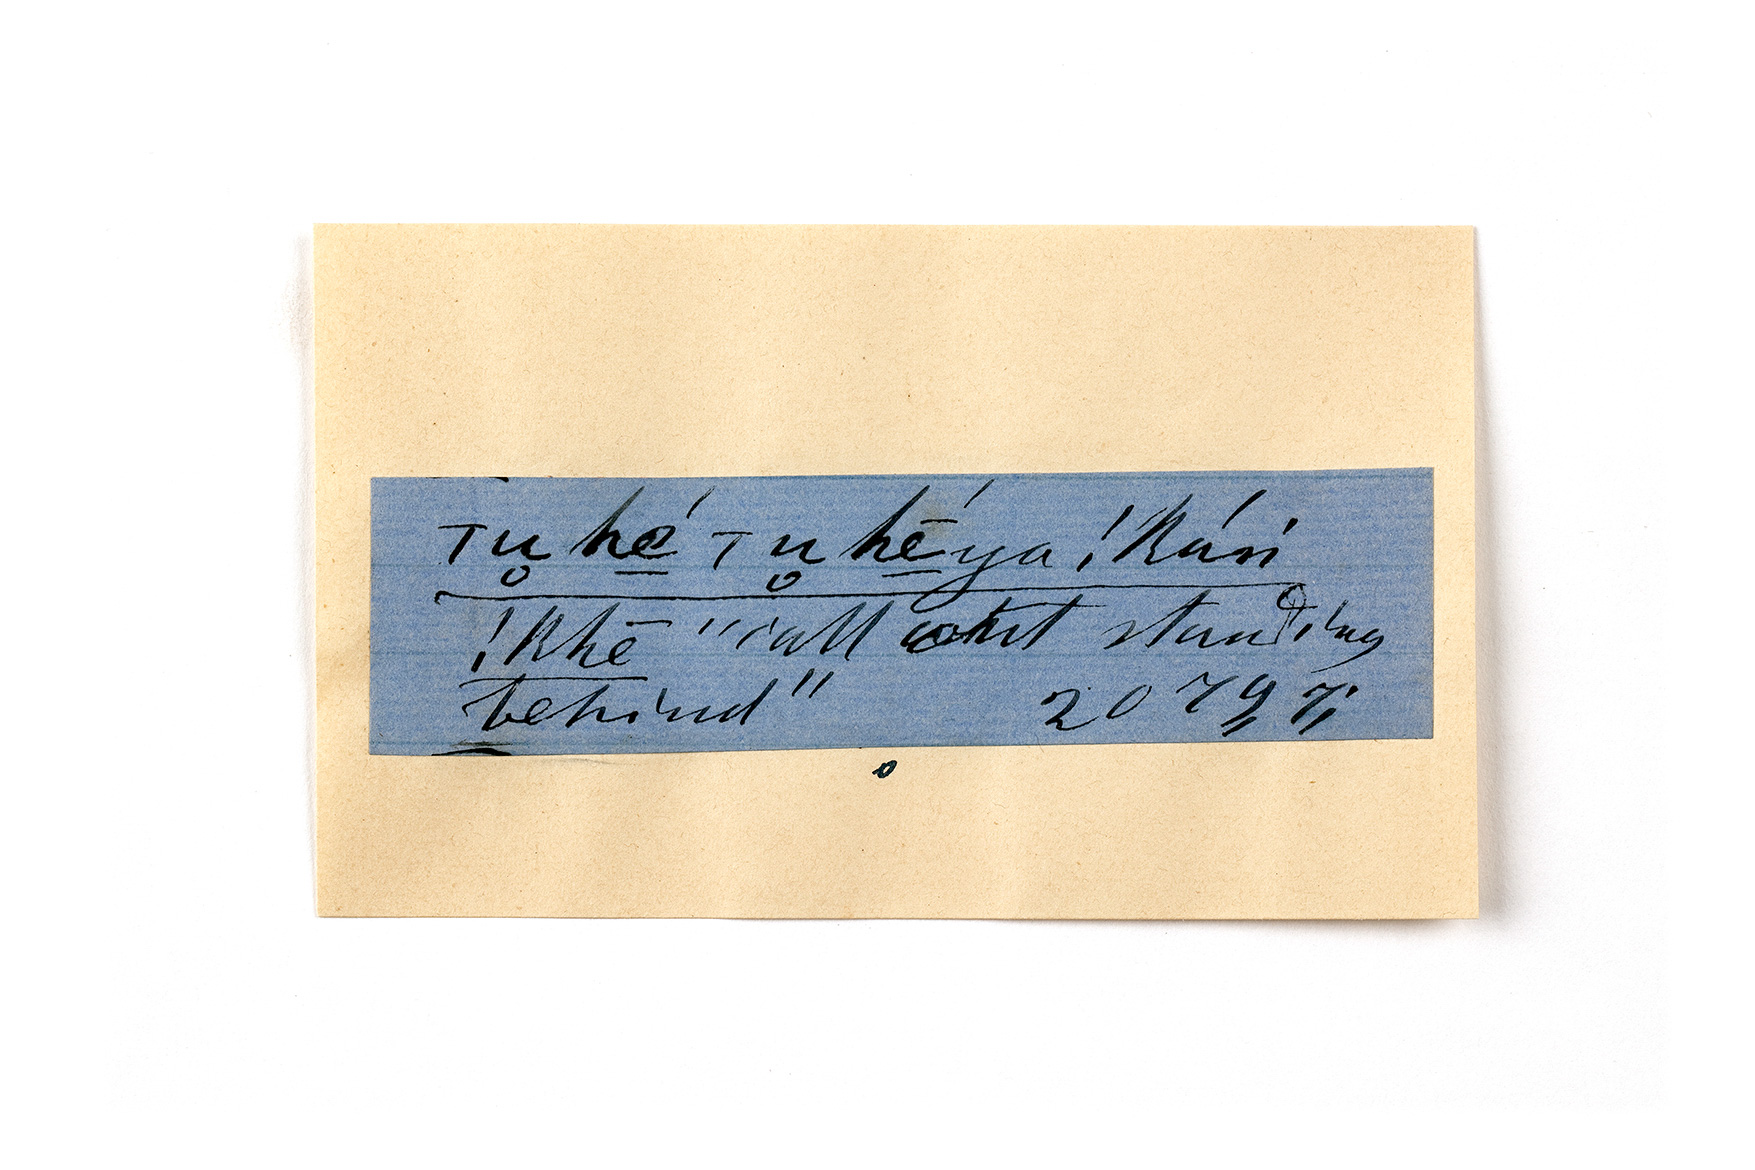 Tu̥ hé̱ Tu̥ hḗ̱ya !kúṅ
!khē "call out standing
behind" 2079½